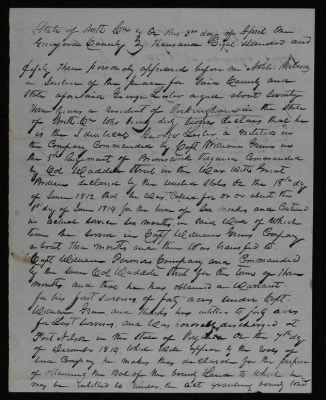 State of North Ca } On this 3rd day of April One
County } Thousand Eight Hundred and
fifty three personaly appeared before me
a Justice of the peace for Said County and
State aforesaid George aged about Seventy
two years a resident of Rockingham in the State
of North Ca Who being duly Sworn declares that he
is the Identical George a militia in
the Company Commanded by Capt William
the 5th Regiment of Brunswick Virginia Commanded
by Col in the War With Great
Britain declared by the United States On the 18th day
of June 1812 that he Was Called for on or about the
1st day of June 1814 for the term of Six months and Continued
in actual Service Six months in Said War of Which
time he Served in Capt Williams Company
about three months and then Was transfered to
Capt William Company and Commanded
by the Same Col for the term of three
months and that he has obtained a Warrant
for his Services of forty acres under Capt
William and thinks his intitled to forty acres
for Last Services, and Was honorably discharged at
Fort Nelson in the State of Virginia On the 7th day
of December 1814, Which Will appear by the
Said Company he makes this declaration for the purpose
of obtaining the of the bounty Land to which he
may be intitled to under the act granting bounty Land